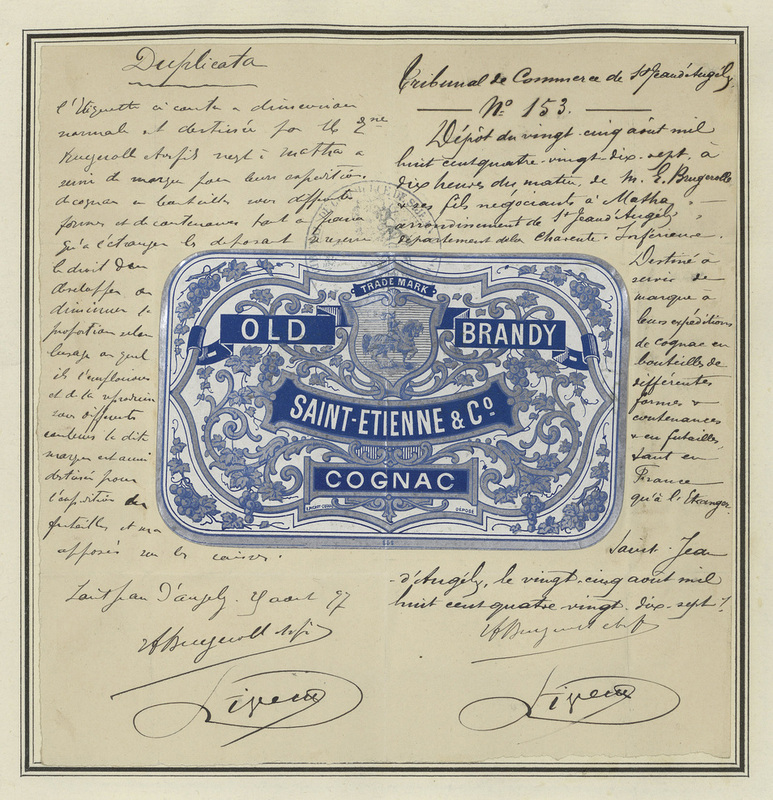 Duplicata
l'Etiquette ci contre a dimension
normale est destinée par
Brugerolle et fils negt à Matha a
servir de marque pour leurs expéditions
de cognac en bouteilles
formes et de contenances tant en France
qu'à l'étranger le déposant se réserve
le droit de
développer ou
diminuer
proportion selon
l'usage au quel
ils l'emploieront
et de la reproduire
sous différentes
couleurs la dite
marque est aussi
destinée pour
l'expédition des
futailles et sera
apposée sur les caisses.
Saint Jean d'angely. 25 aout 97
Tribunal de Commerce de St Jean d'Angély.
No 153.
Dépôt du vingt-cinq août mil
huit cent quatre-vingt-dix-sept, à
dix heures du matin, de M. E. Brugerolle
& ses fils négociants à Matha,
arrondissement de St Jean d'Angély
département de la Charente-Inférieure.
Destiné à
servir de
marque à
leurs expéditions
de cognac en
bouteilles de
différentes
formes &
contenances
& en futailles,
tant en
France
qu'à l'Etranger.
Saint-Jean
d'Angély, le vingt-cinq août mil
huit cent quatre-vingt-dix-sept.
TRADE MARK
OLD BRANDY
SAINT-ETIENNE & Co
COGNAC
DÉPOSÉ